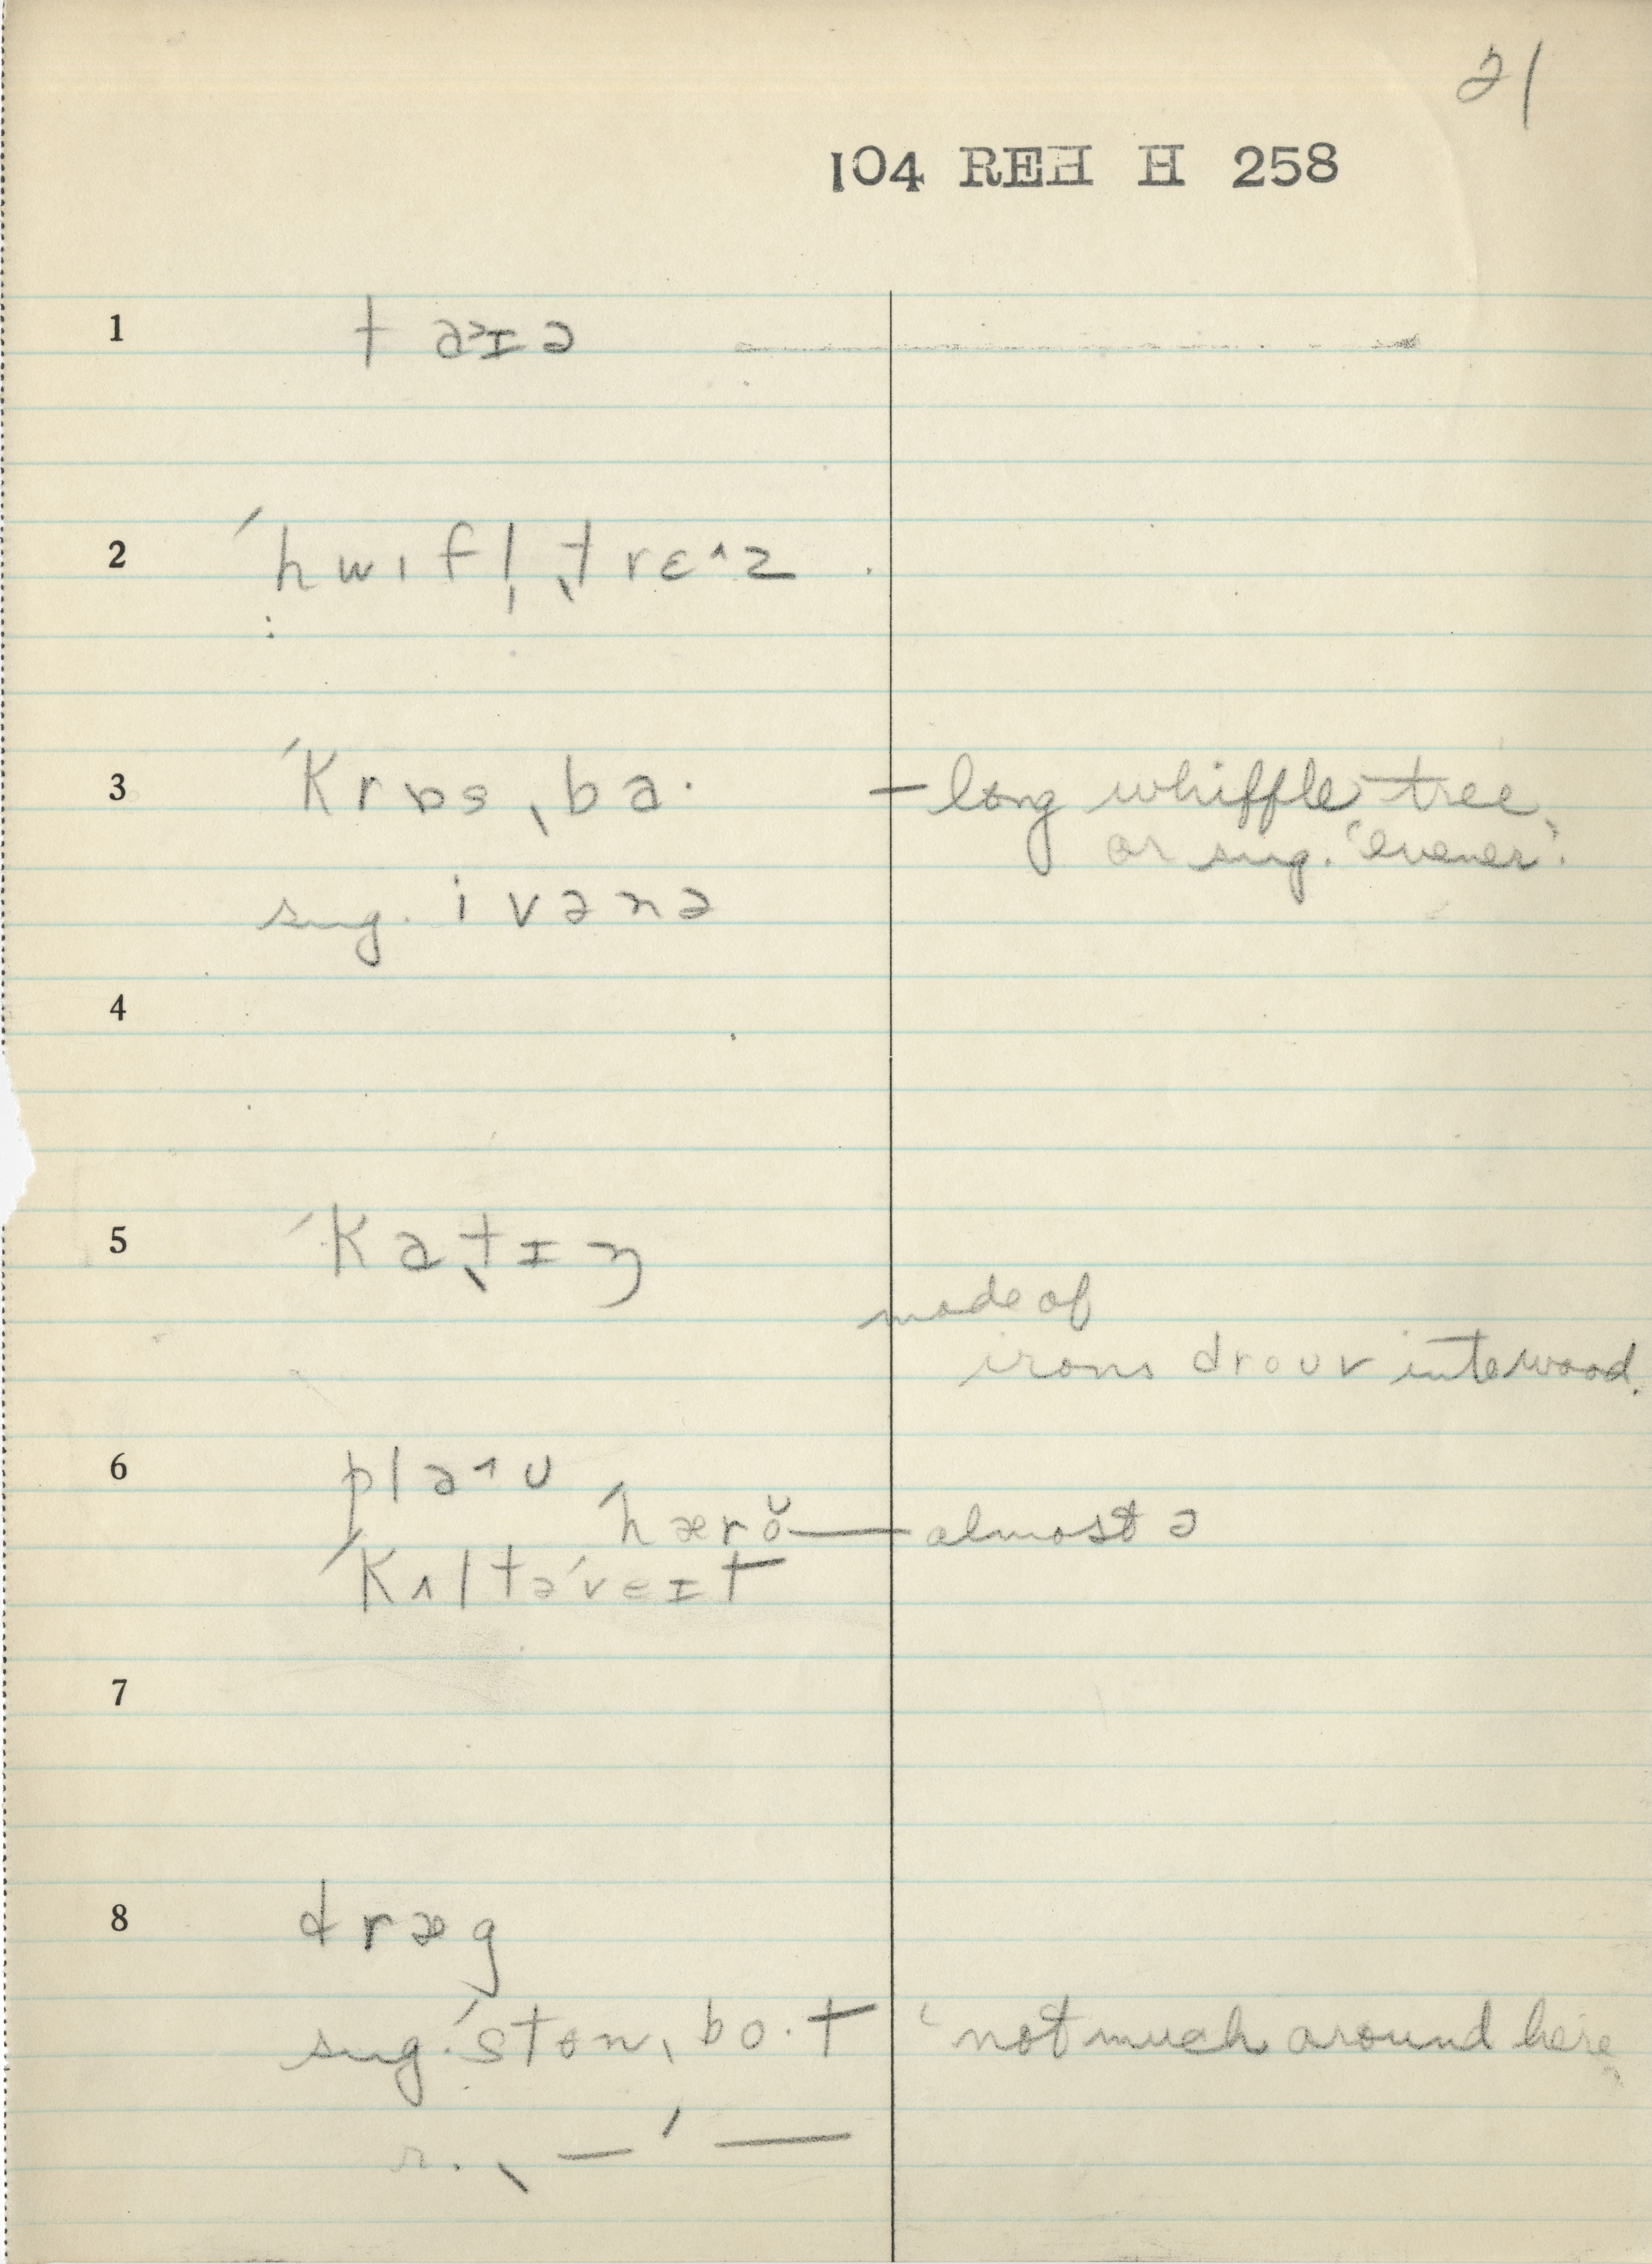 21
104 REH H 258
1 taɪə
2 ˈhwɪfl̩ˌtrɛ^z
3 ˈkrɒsˌba· – long whiffle tree
or sug. 'evener'.
sug. ivənə
4
5 ˈkaˌtɪŋ
made of
irons droʊv into wood.
6 plaʊ
ˈhærŏ — almost ə
ˈkʌltəˈveɪt
7
8 dræg
sug. ˈstonˌbo·t 'not much around here'
r. ˌ— ˈ—